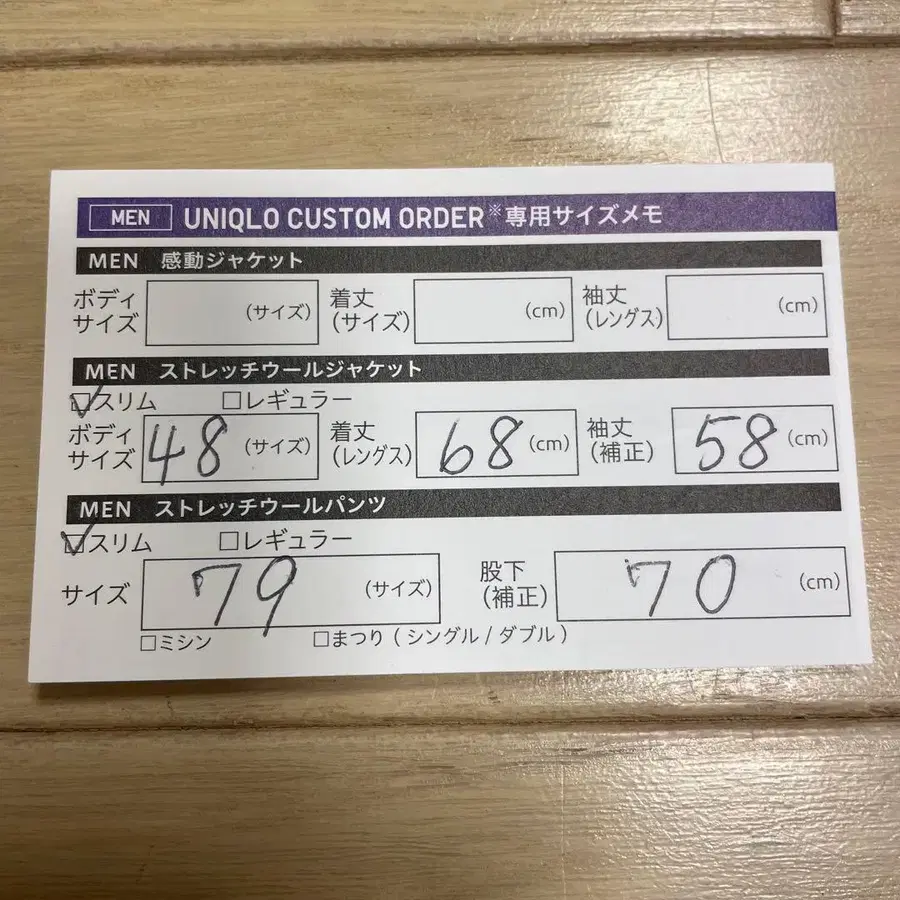 MEN UNIQLO CUSTOM ORDER※専用サイズメモ
MEN 感動ジャケット
ボディサイズ (サイズ) 着丈(サイズ) (cm) 袖丈(レングス) (cm)
MEN ストレッチウールジャケット
☑スリム □レギュラー
ボディサイズ 48 (サイズ) 着丈(レングス) 68 (cm) 袖丈(補正) 58 (cm)
MEN ストレッチウールパンツ
☑スリム □レギュラー
サイズ 79 (サイズ) 股下(補正) 70 (cm)
□ミシン □まつり(シングル/ダブル)